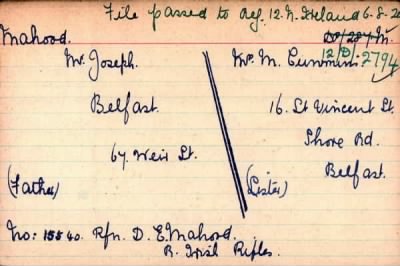 File passed to Reg. 12. N. Ireland 6.8.20
Mahood.
12/D/2794
Mr. Joseph.
Belfast.
67. Weir St.
(Father)
Mrs. M. Cummins.
16. St Vincent St.
Shore Rd.
Belfast.
(Sister)
No: 15540. Rfn. D. E. Mahood.
R. Irish Rifles.